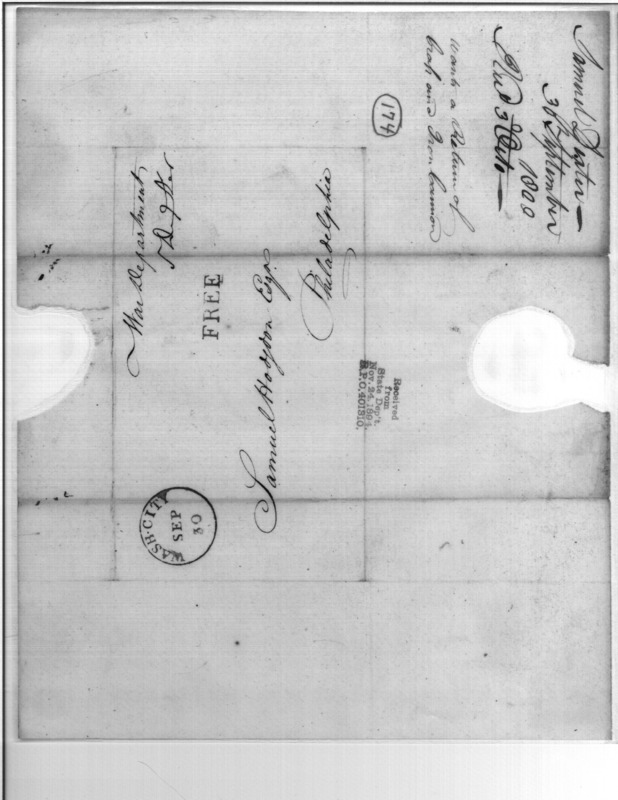 Samuel Dexter
30 September
1800
Recd 3 Octo
wants a Return of
brass and Iron Cannon
174
War Department
S Dexter
FREE
Samuel Hodgdon Esqr
Philadelphia
WASH. CITY
SEP
30
Received
from
State Dep't.
Nov. 24, 1894.
R.P.O. 401310.